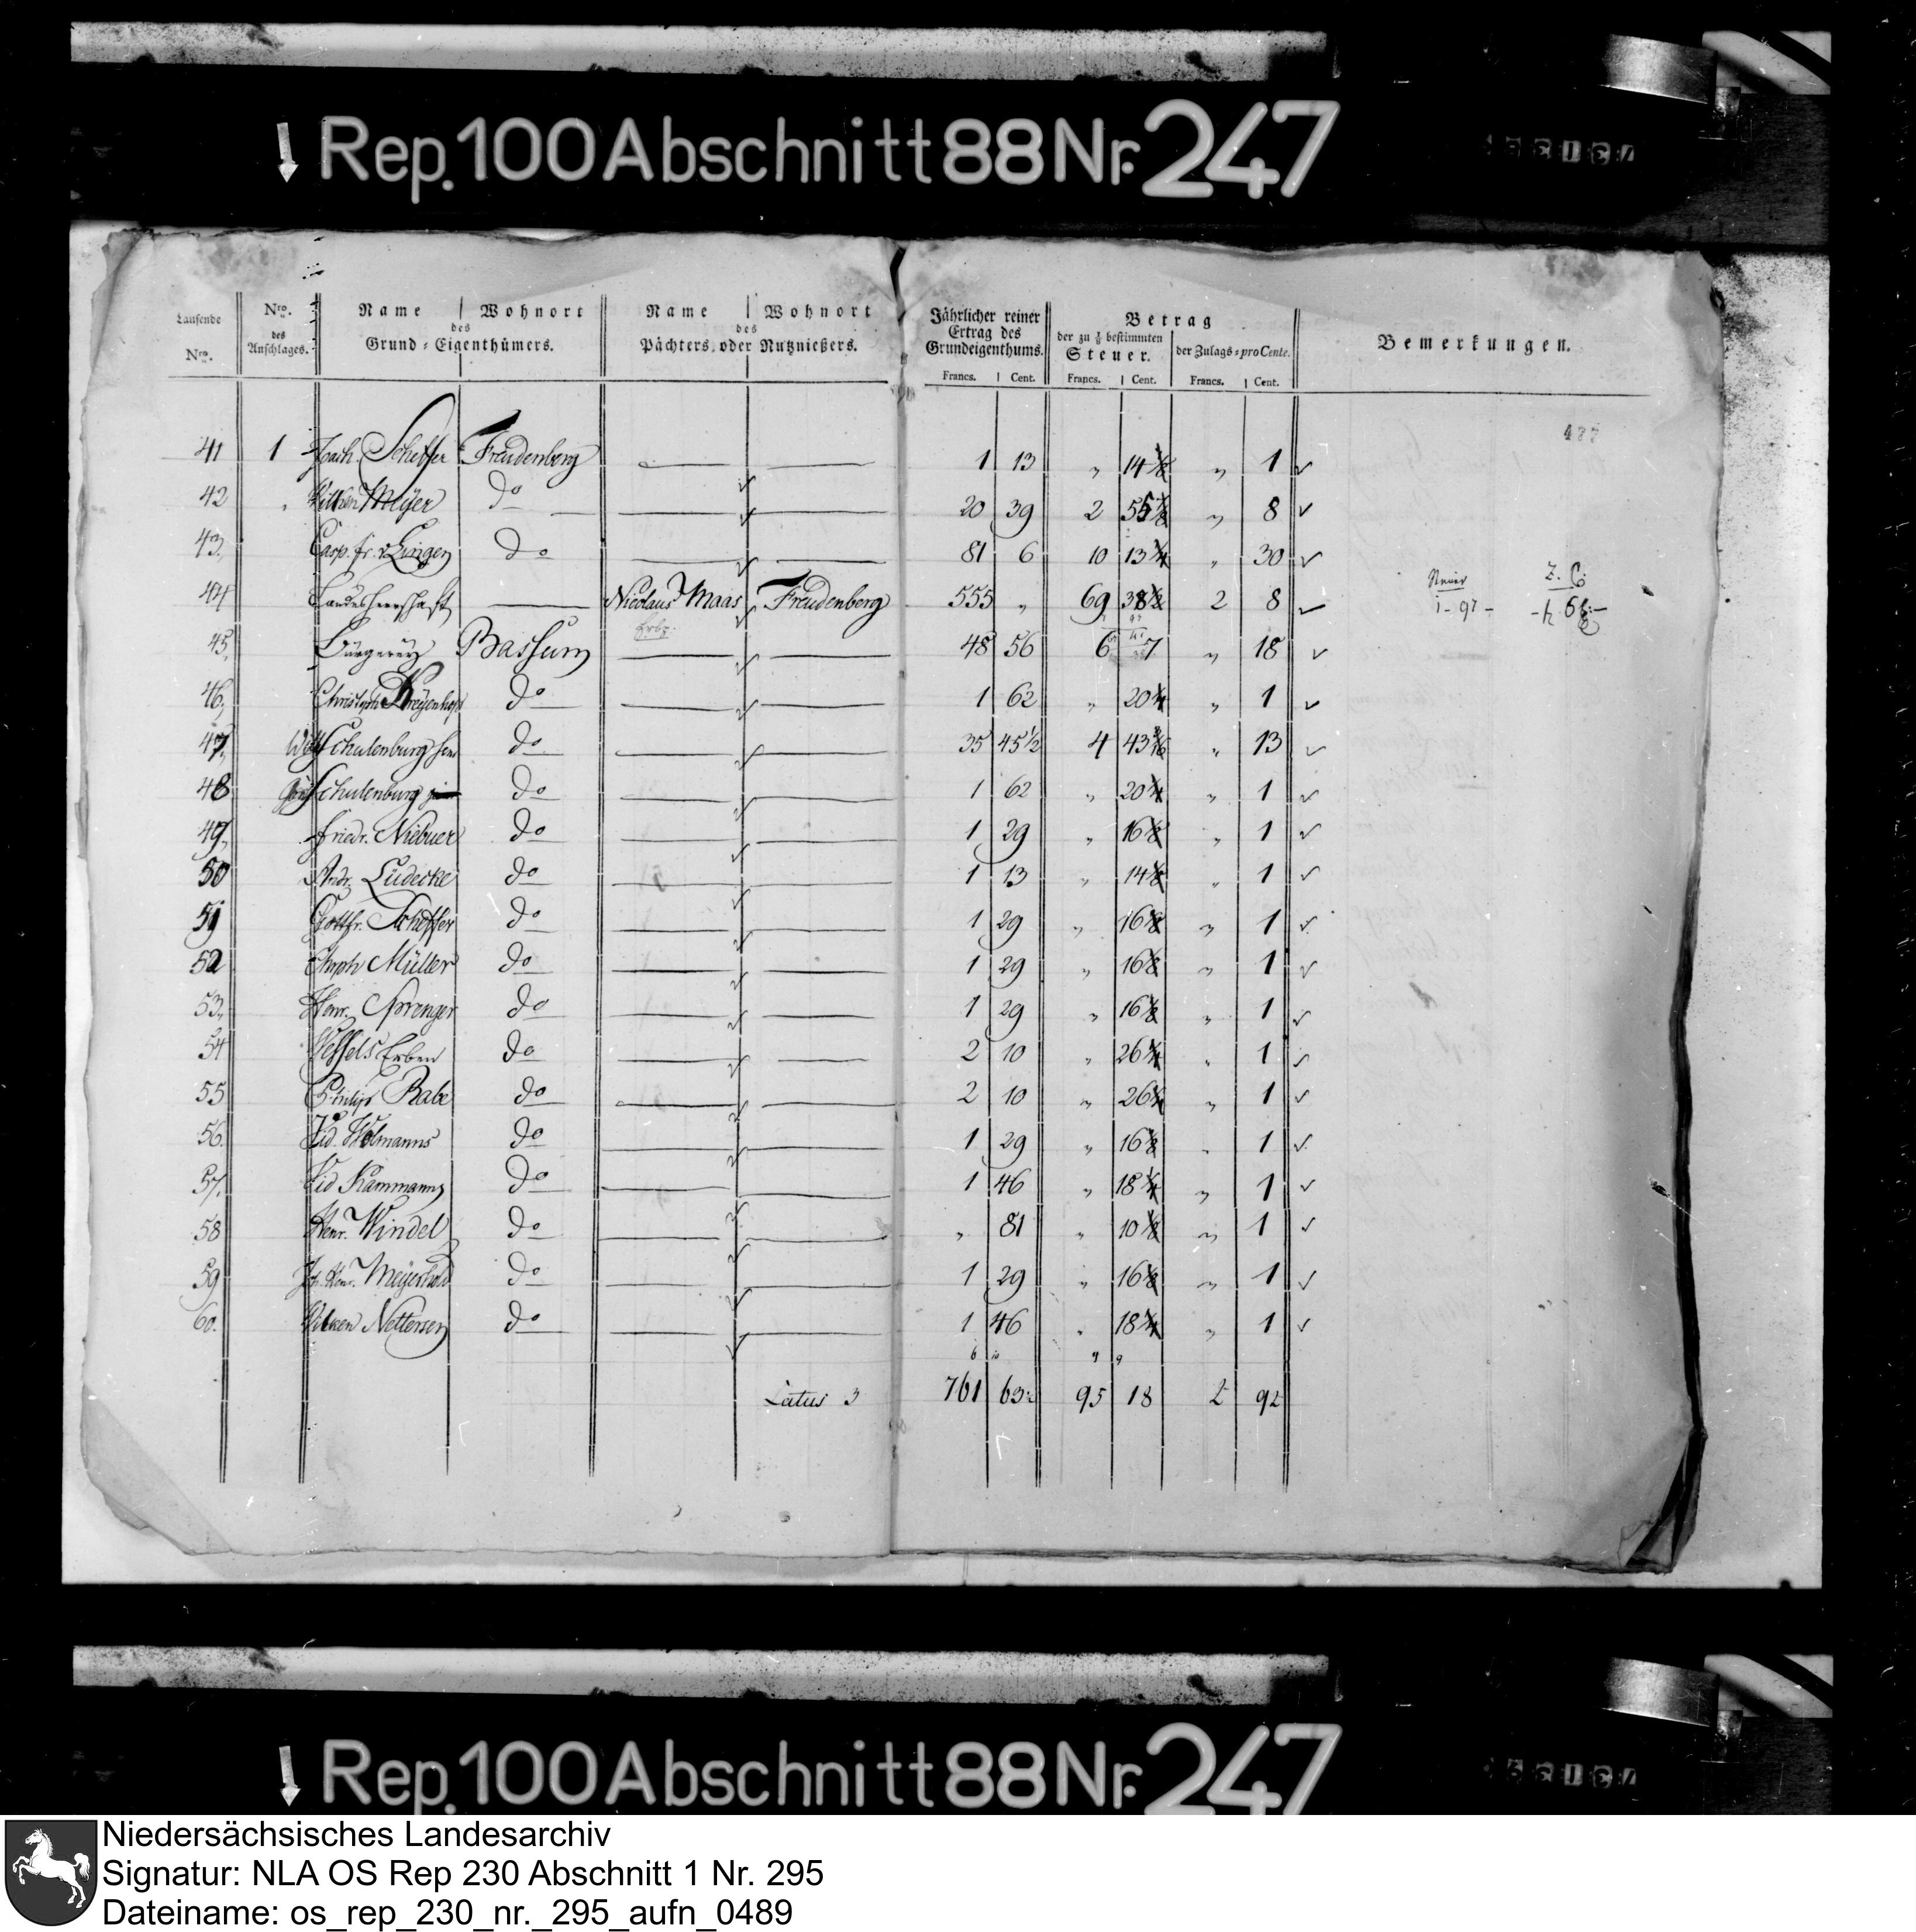 Rep. 100 Abschnitt 88 Nr. 247
Laufende Nro. | Nro. des Anschlages. | Name | Wohnort des Grund-Eigenthümers. | Name | Wohnort des Pächters oder Nutznießers. | Jährlicher reiner Ertrag des Grundeigenthums. | Betrag der zu 1/8 bestimmten Steuer. | der Zulags-pro Cente. | Bemerkungen.
Francs. | Cent. | Francs. | Cent. | Francs. | Cent.
477
41 1 Scheffer Freudenberg 1 13 " 14 1/8 " 1
42 Meÿer do 20 39 2 " 8
43. Casp. fr. v Lingen do 81 6 10 13 1/4 " 30
44 Landesherrschaft Nicolaus Maas Freudenberg 555 " 69 2 8
Erbz.
Steuer Z. C.
45, Bürgereÿ Bassum 48 56 6 7 " 18
46, Christoph do 1 62 " 20 1/4 " 1
47, Schulenburg sen do 35 45 1/2 4 43 " 13
48 Schulenburg do 1 62 " 20 1/4 " 1
49, Friedr. Niebuer do 1 29 " 16 1/8 " 1
50 Andr. Lüdecke do 1 13 " 14 1/8 " 1
51 Gottfr. Scheffer do 1 29 " 16 1/8 " 1
52 Chrph Müller do 1 29 " 16 1/8 " 1
53, Henr. Sprenger do 1 29 " 16 1/8 " 1
54 Wessels Erben do 2 10 " 26 1/4 " 1
55 Philip Rabe do 2 10 " 26 1/4 " 1
56. do 1 29 " 16 1/8 " 1
57, Kammann do 1 46 " 18 1/4 " 1
58 Henr. Windel do " 81 " 10 1/8 " 1
59 Joh. Henr. Meÿerholt do 1 29 " 16 1/8 " 1
60. Wilken Nettersen do 1 46 " 18 1/4 " 1
Latus 3 761 63 1/2 95 18 2 92
Rep. 100 Abschnitt 88 Nr. 247
Niedersächsisches Landesarchiv
Signatur: NLA OS Rep 230 Abschnitt 1 Nr. 295
Dateiname: os_rep_230_nr._295_aufn_0489